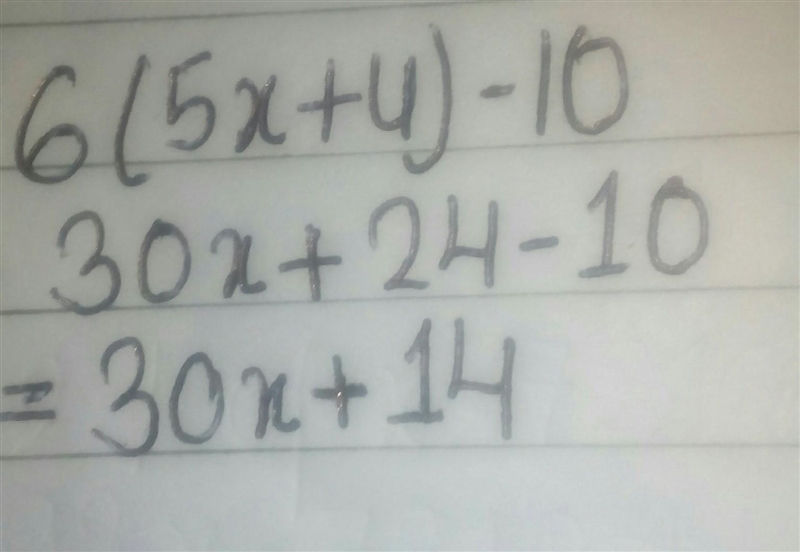 6(5x+4)-10
30x+24-10
=30x+14